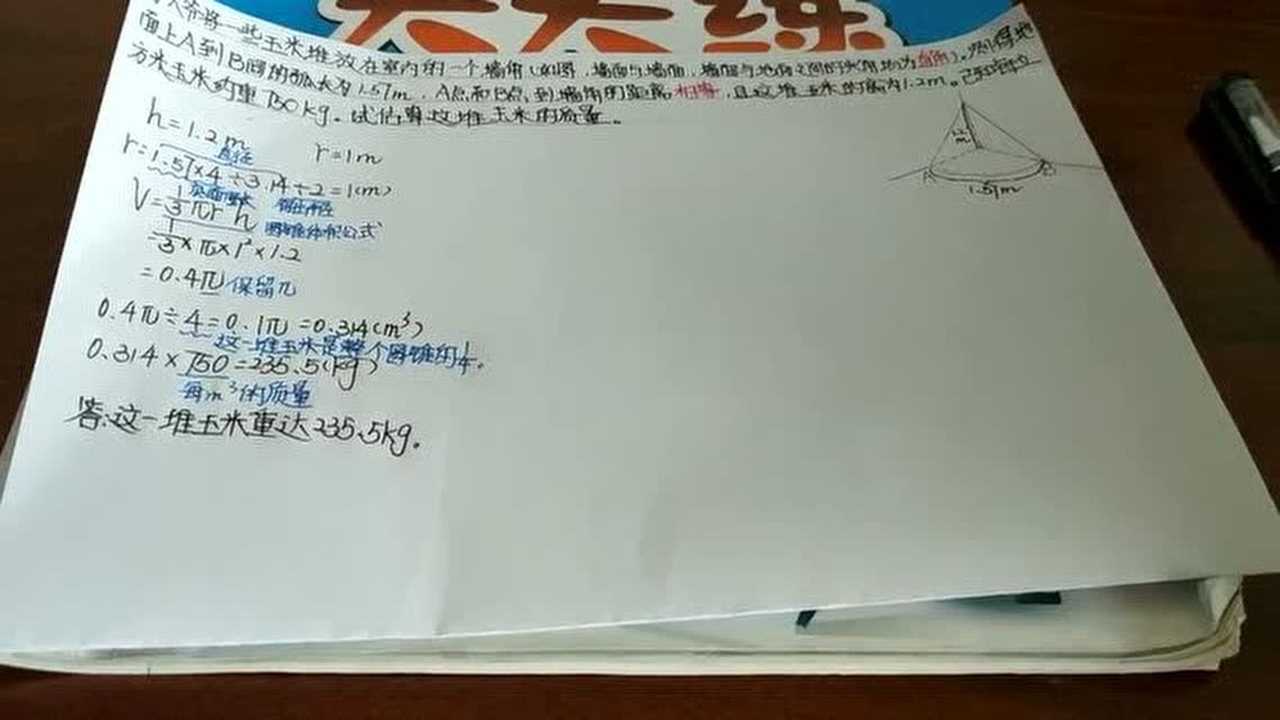 天天练
大爷将一些玉米堆放在室内的一个墙角(如图,墙面与墙面,墙面与地面之间的夹角均为直角)。测得地
面上A到B间的弧长为1.57m,A点和B点到墙角的距离相等,且这堆玉米的高为1.2m。已知每立
方米玉米约重750kg。试估算这堆玉米的质量。
1.2
m
A
B
1.57m
h=1.2m
r=1m
直径
r=1.57×4÷3.14÷2=1(m)
底面周长
V=1/3πr²h
圆锥体积公式
=1/3×π×1²×1.2
=0.4π 保留π
0.4π÷4=0.1π=0.314(m³)
这一堆玉米是整个圆锥的1/4。
0.314×750=235.5(kg)
每m³的质量
答:这一堆玉米重达235.5kg。